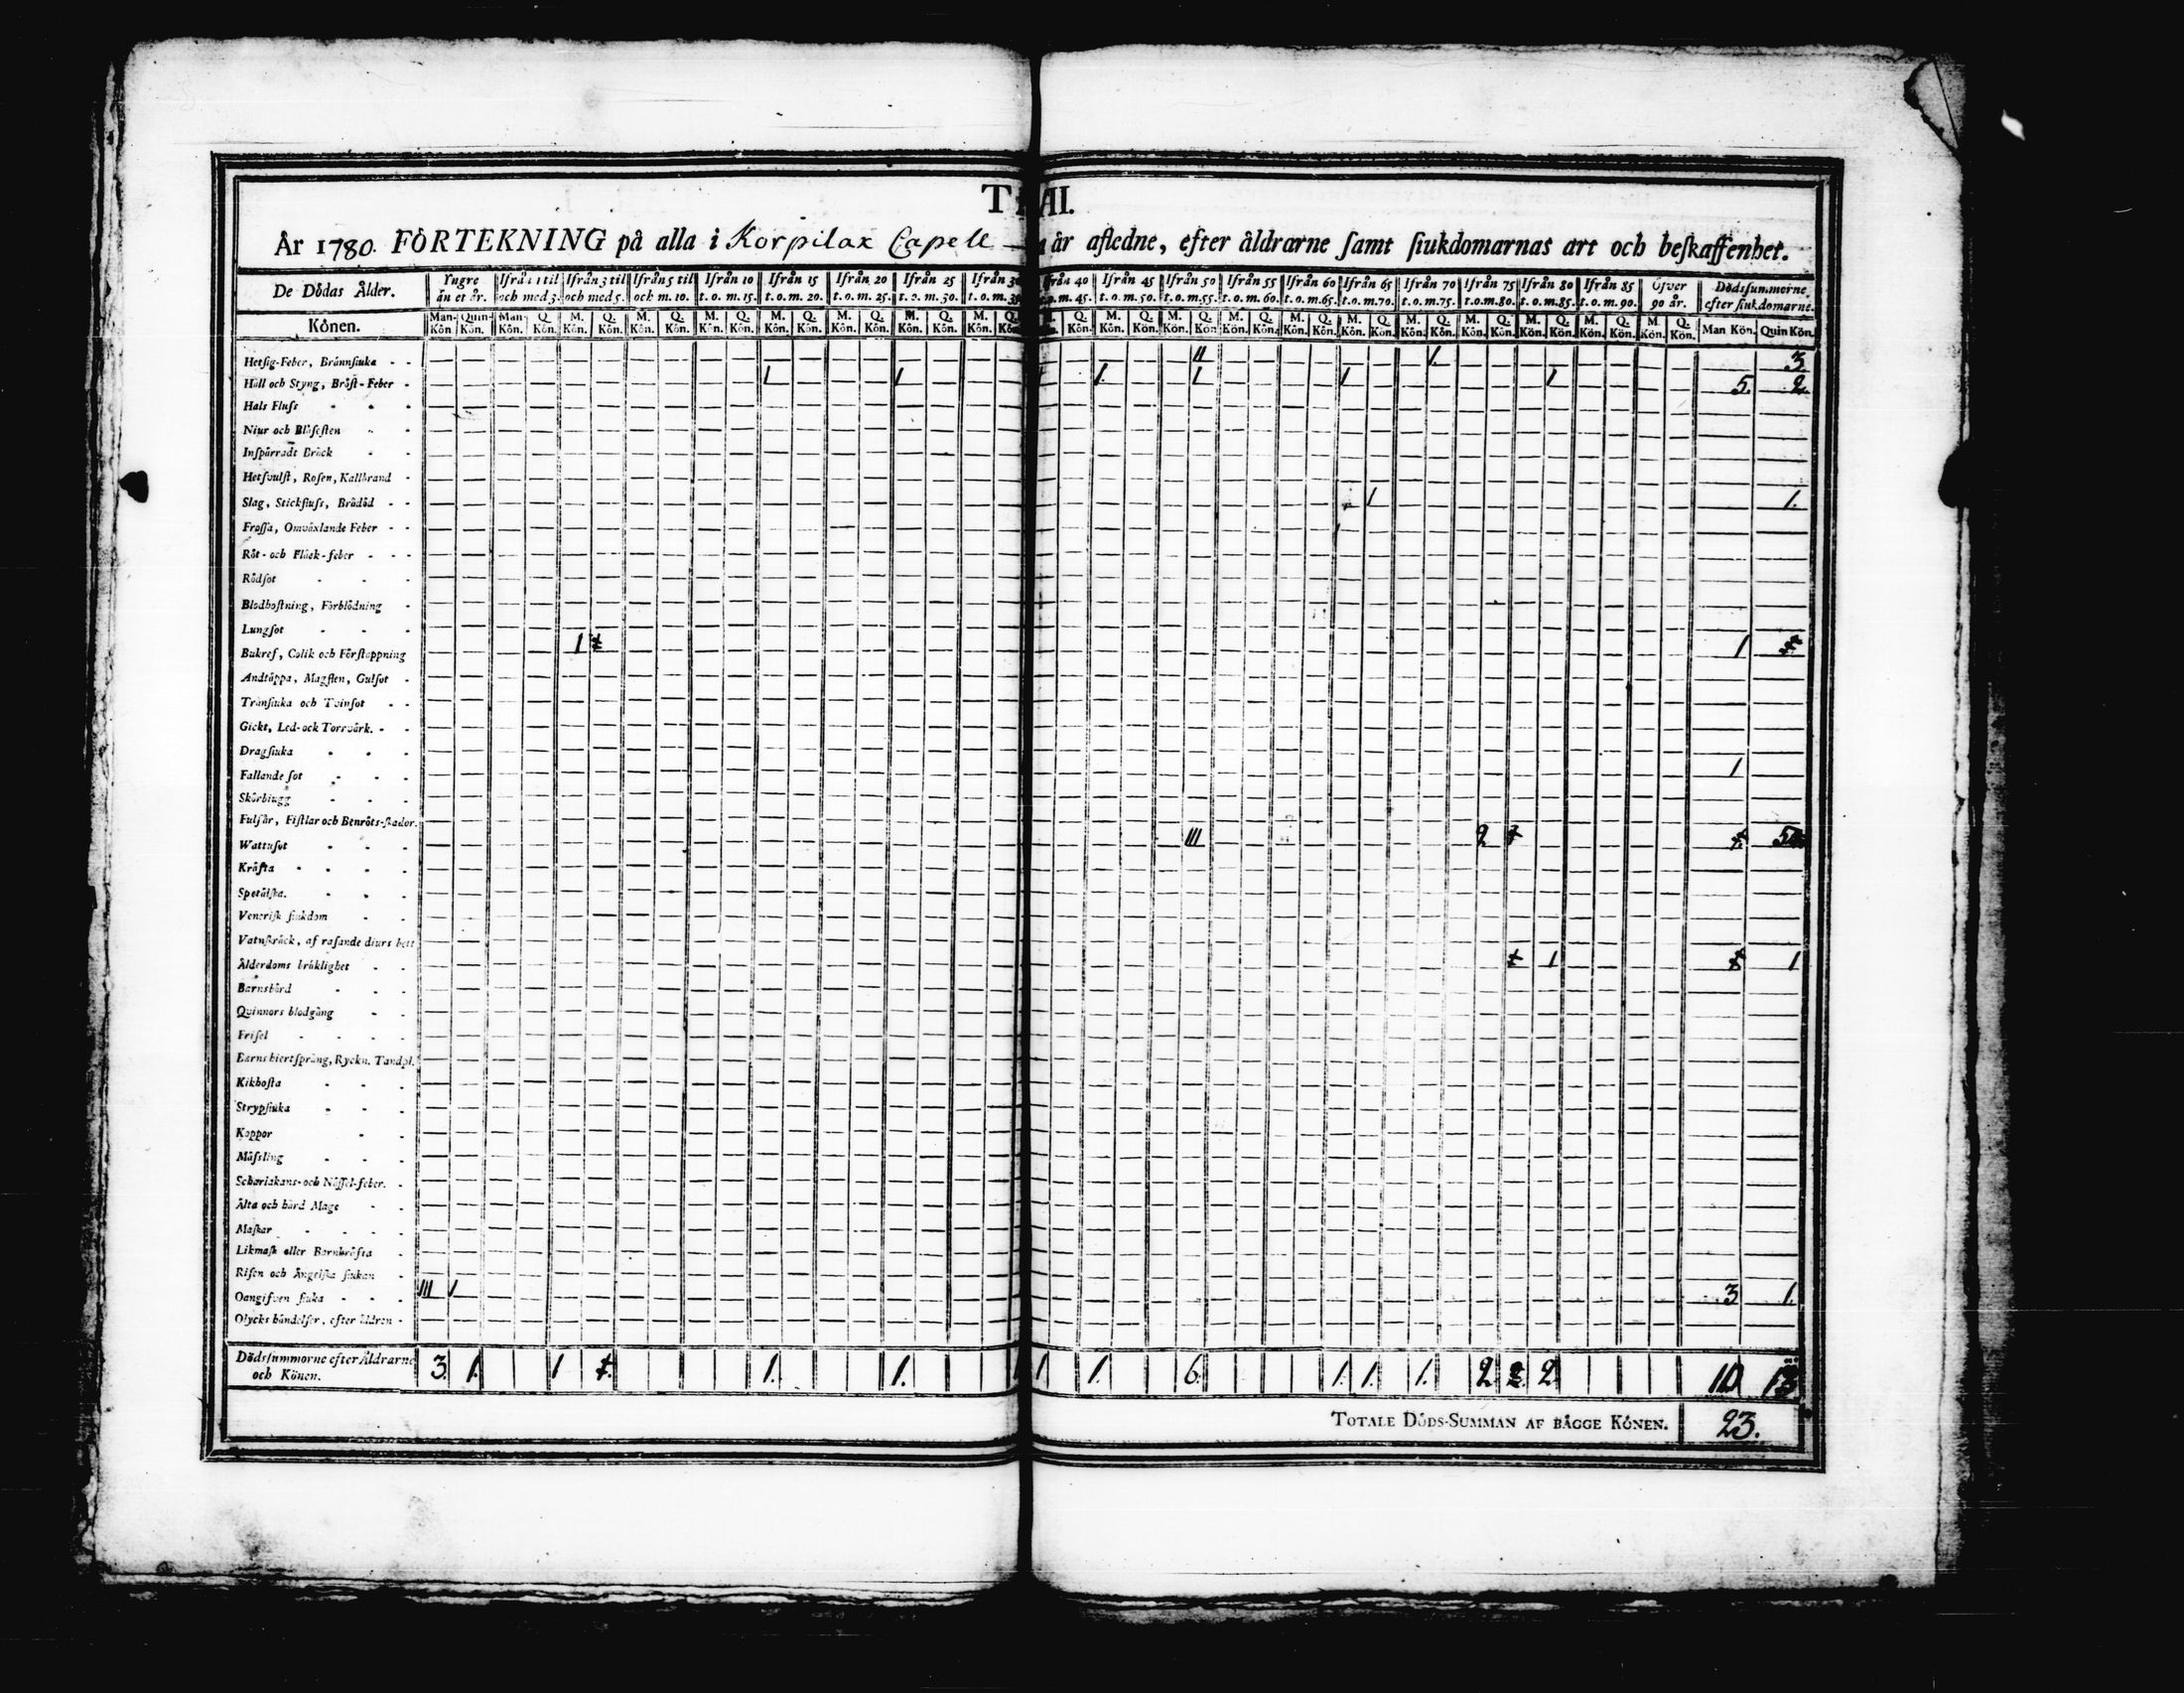 T AII.
År 1780. FÖRTEKNING på alla i Korpilax Capell — år afledne, efter åldrarne ſamt ſiukdomarnas art och beſkaffenhet.
De Dödas Ålder. Yngre än et år. Ifrån 1 til och med 3. Ifrån 3 til och med 5. Ifrån 5 til och m. 10. Ifrån 10 t. o. m. 15. Ifrån 15 t. o. m. 20. Ifrån 20 t. o. m. 25. Ifrån 25 t. o. m. 30. Ifrån t. o. m. från 40 m. 45. Ifrån 45 t. o. m. 50. Ifrån 50 t. o. m. 55. Ifrån 55 t. o. m. 60. Ifrån 60 t. o. m. 65. Ifrån 65 t. o. m. 70. Ifrån 70 t. o. m. 75. Ifrån 75 t. o. m. 80. Ifrån 80 t. o. m. 85. Ifrån 85 t. o. m. 90. Öfver 90 år. Dödsſummorne efter ſiukdomarne.
Könen. Man-Kön. Quin-Kön. Man-Kön. Q. Kön. M. Kön. Q. Kön. M. Kön. Q. Kön. M. Kön. Q. Kön. M. Kön. Q. Kön. M. Kön. Q. Kön. M. Kön. Q. Kön. M. Kön. Q. Kön. Q. Kön. M. Kön. Q. Kön. M. Kön. Q. Kön. M. Kön. Q. Kön. M. Kön. Q. Kön. M. Kön. Q. Kön. M. Kön. Q. Kön. M. Kön. Q. Kön. M. Kön. Q. Kön. M. Kön. Q. Kön. M. Kön. Q. Kön. Man Kön. Quin Kön.
Hetſig-Feber, Brännſiuka - - II 1. 3.
Håll och Styng, Bröſt-Feber - 1 1 1. 1 1 1 5. 2.
Hals Fluſs - - -
Niur och Blåſeſten - -
Inſpärradt Bräck - -
Hetſvulſt, Roſen, Kallbrand -
Slag, Stickfluſs, Brådöd - - 1 1.
Froſſa, Omväxlande Feber - -
Röt- och Fläck-feber - - -
Rödſot - - -
Blodhoſtning, Förblödning -
Lungſot - - -
Bukref, Colik och Förſtoppning 1 1
Andtäppa, Magſten, Gulſot -
Trånſiuka och Tvinſot - -
Gickt, Led- och Torrvärk. - -
Dragſiuka - - -
Fallande ſot - - - 1
Skörbiugg - - -
Fulſår, Fiſtlar och Benröts-ſkador.
Wattuſot - - - III 2
Kräfta - - - -
Spetälſka. - - -
Veneriſk ſiukdom - -
Vatnſkräck, af raſande diurs bett
Ålderdoms bräklighet - - 1 1
Barnsbörd - - -
Quinnors blodgång - -
Friſel - - - -
Barns hiertſprång, Ryckn. Tandpl.
Kikhoſta - - -
Strypſiuka - - -
Koppor - -
Mäſsling - - -
Scharlakans- och Näſſel-feber. -
Älta och hård Mage - -
Maſkar - - - -
Likmaſk eller Barnkräfta -
Riſen och Ängelſka ſiukan -
Oangifven ſiuka - - - III 1 3 1.
Olycks händelſer, efter åldren -
Dödsſummorne efter Åldrarne och Könen. 3. 1. 1 1. 1. 1 1. 6. 1. 1. 1. 2 2. 10 13
TOTALE DÖDS-SUMMAN AF BÅGGE KÖNEN. 23.